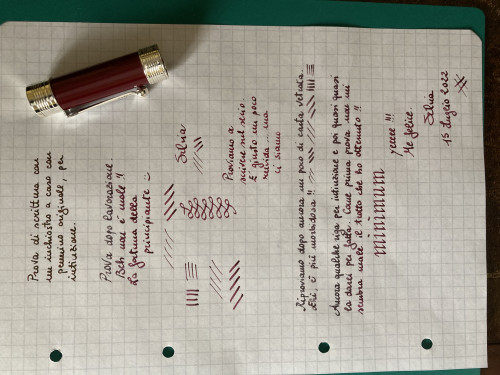 Prova di scrittura con
un inchiostro a caso con
pennino originale, per
intuizione.
Prova dopo lavorazione
Beh non è male !!
La fortuna della
principiante
Silvia
Proviamo a
scrivere sul serio.
È giusto un poco
ruvida ... ma
ci siamo
Riproviamo dopo ancora un poco di carta vetrata.
Ehi, è più morbidosa !!
Ancora qualche riga per intuizione e poi quasi quasi
la darei per fatta. Come prima prova non mi
sembra male il tratto che ho ottenuto !!
minimum
yeeee !!!
Me felice.
Silvia
15 Luglio 2022